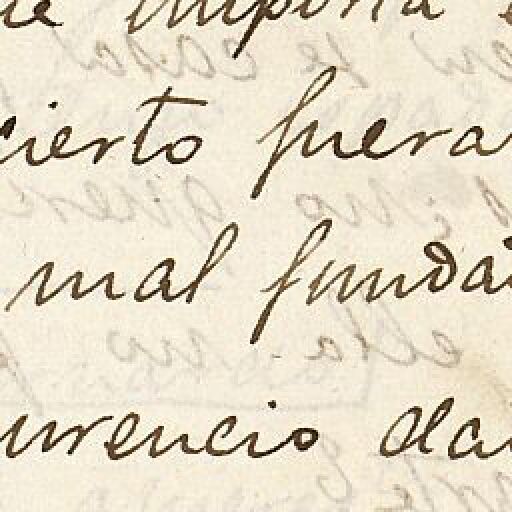 ue importa
cierto fuera
mal funda
urencio dai